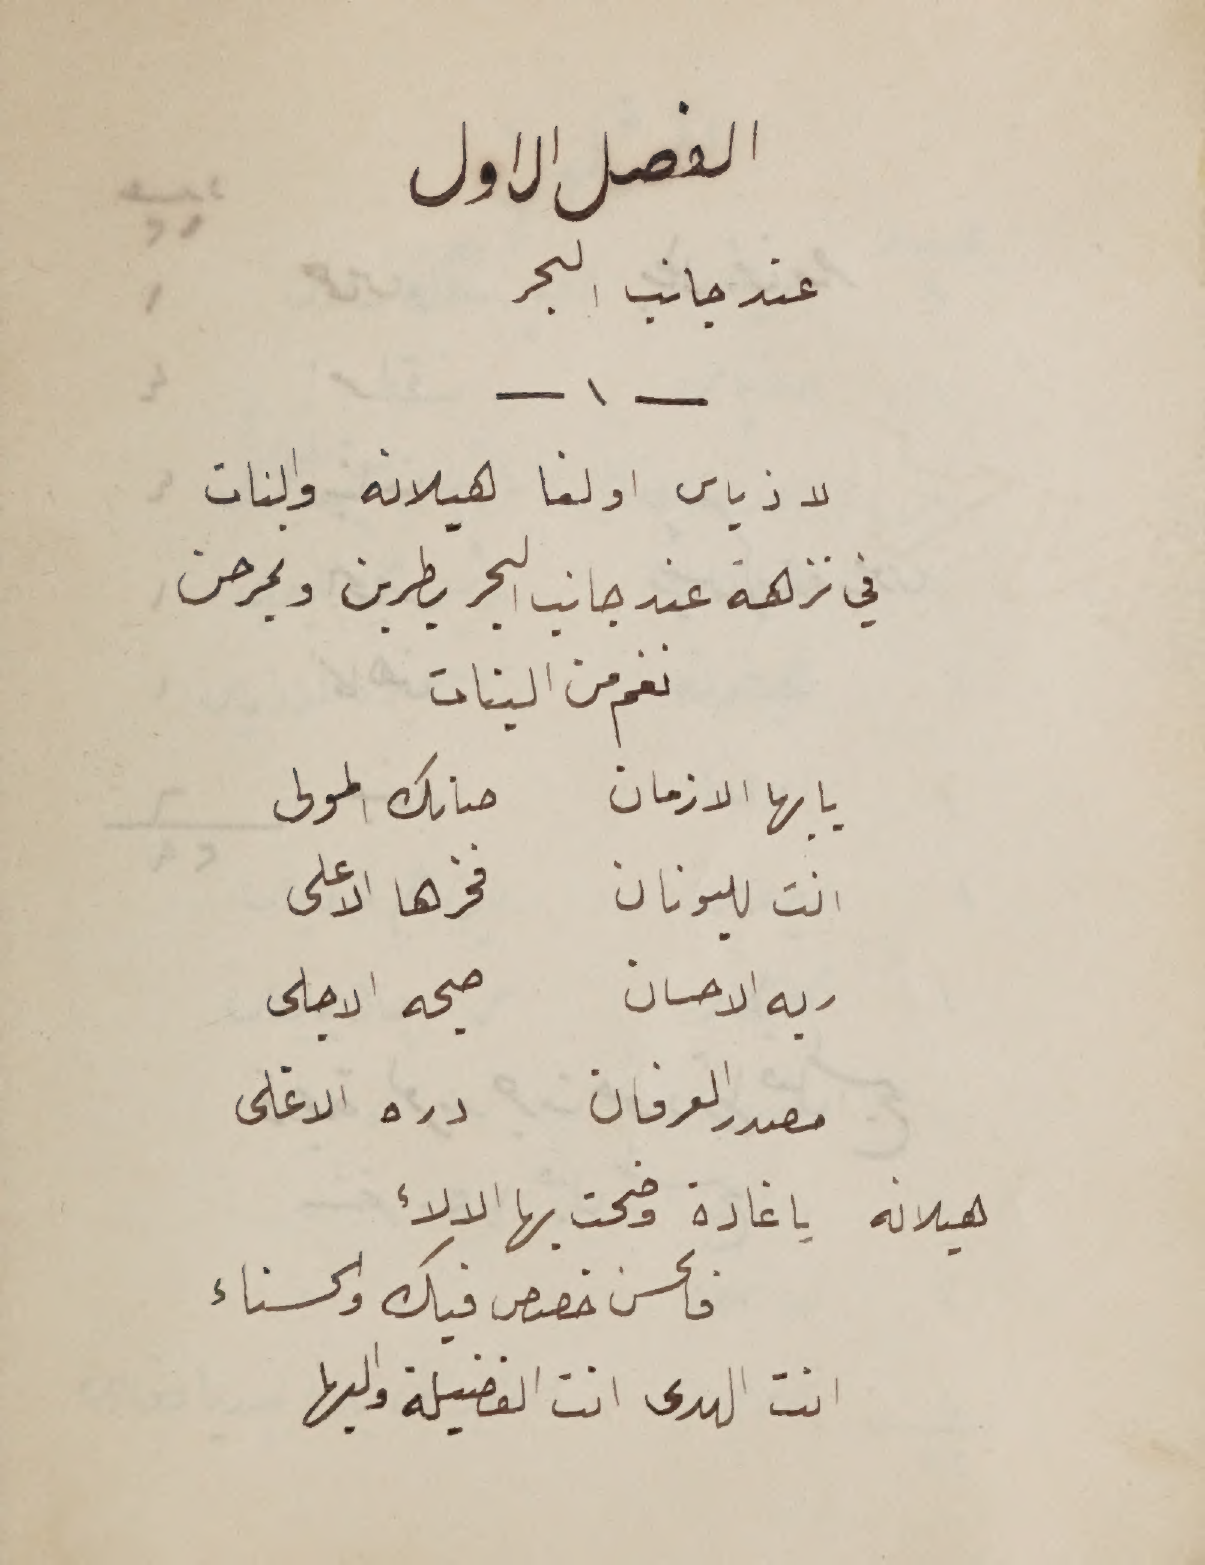 الفصل الاول
عند جانب البحر
— ١ —
لاذياس اولغا هيلانه والبنات
في نزهة عند جانب البحر يطربن ويمرحن
نغم من البنات
يا بها الازمان صانك المولى
انت لليونان فخرها الاعلى
ربه الاحسان صبحه الاجلى
مصدر العرفان دره الاغلى
هيلانه يا غادة وضحت بها الالاء
فالحسن خصص فيك والحسناء
انت الهدى انت الفضيلة والبها